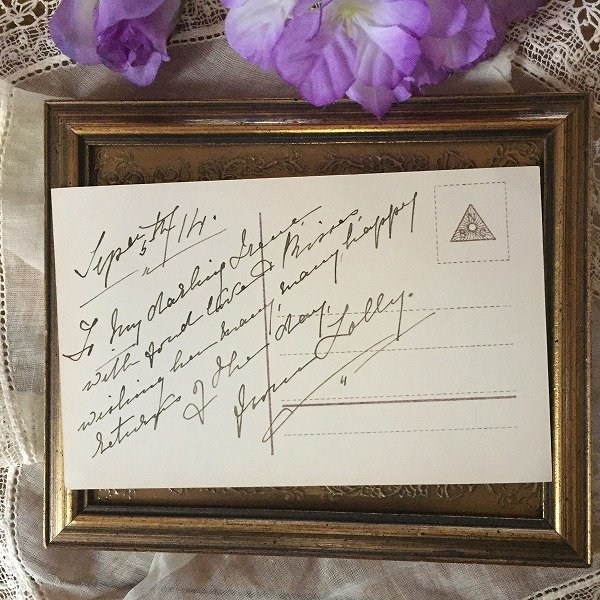 Sepr 5th/14.
To my darling Irene
with fond love & Kisses
wishing her many, many, happy
returns of the day,
from Lolly.